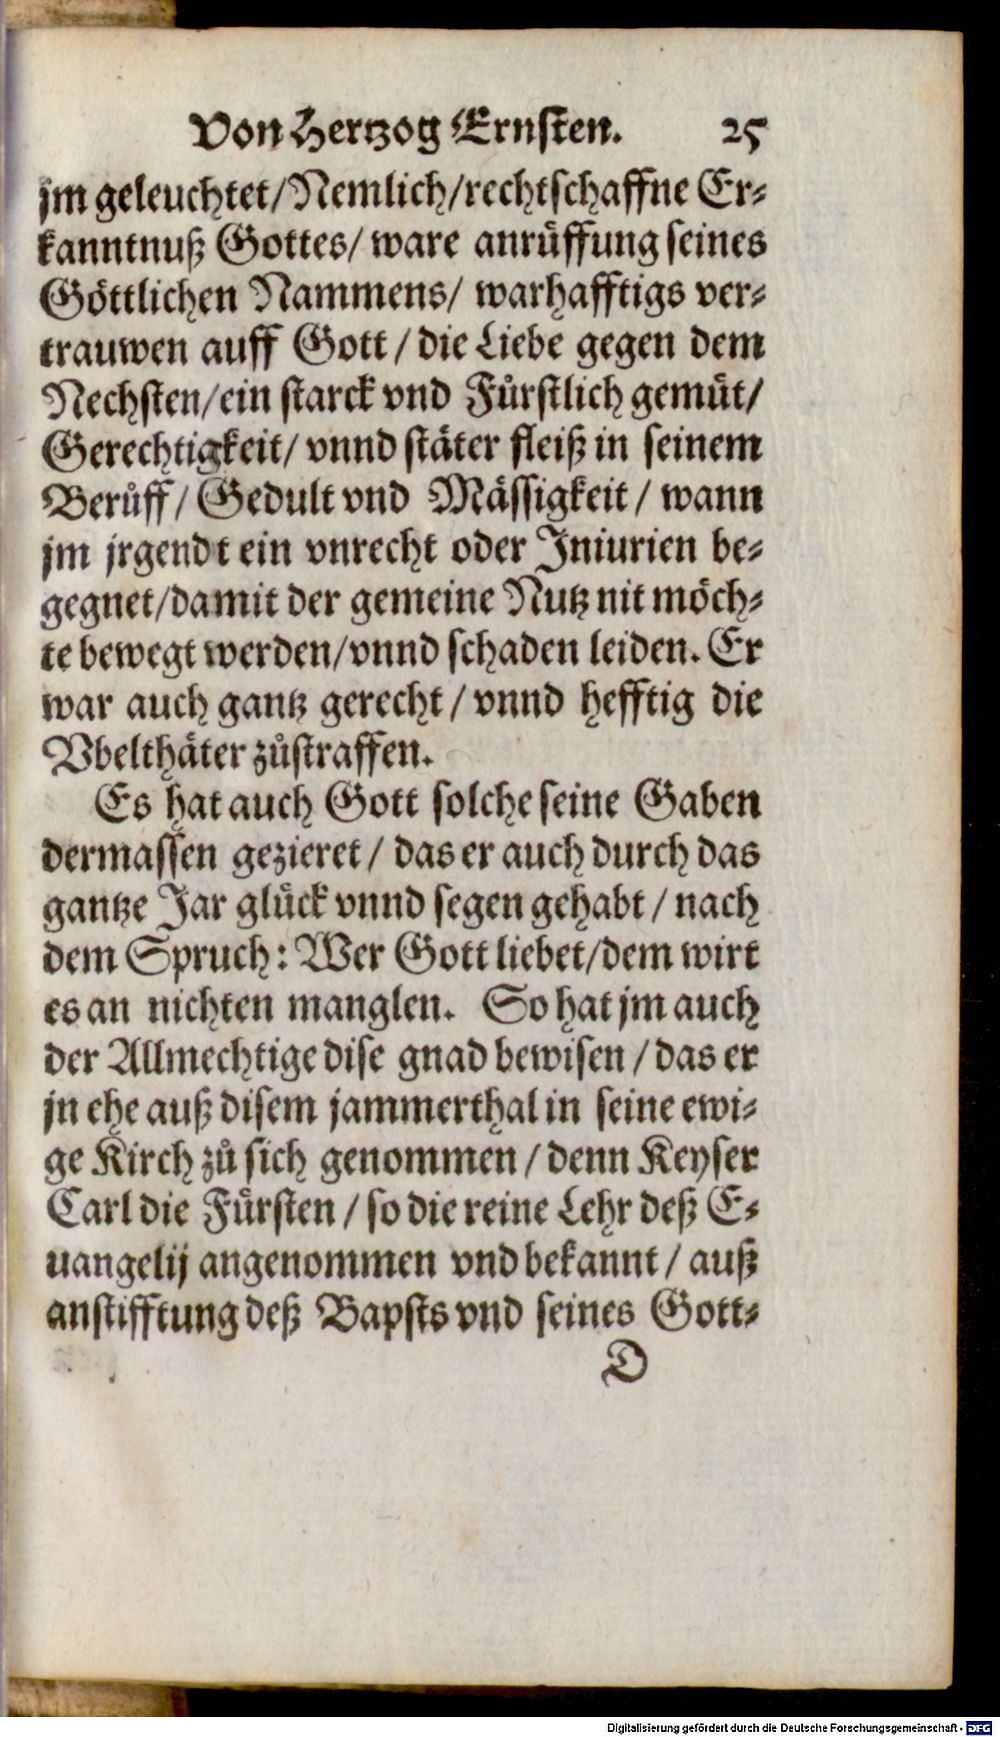 Von Hertzog Ernsten. 25
jm geleuchtet/ Nemlich/ rechtschaffne Er-
kanntnuß Gottes/ ware anrůffung seines
Göttlichen Nammens/ warhafftigs ver-
trauwen auff Gott / die Liebe gegen dem
Nechsten/ ein starck vnd Fürstlich gemüt/
Gerechtigkeit/ vnnd stäter fleiß in seinem
Berůff/ Gedult vnd Mässigkeit / wann
jm jrgendt ein vnrecht oder Iniurien be-
gegnet/ damit der gemeine Nutz nit möch-
te bewegt werden/ vnnd schaden leiden. Er
war auch gantz gerecht / vnnd hefftig die
Vbelthäter zůstraffen.
Es hat auch Gott solche seine Gaben
dermassen gezieret / das er auch durch das
gantze Jar glück vnnd segen gehabt / nach
dem Spruch: Wer Gott liebet/ dem wirt
es an nichten manglen. So hat jm auch
der Allmechtige dise gnad bewisen / das er
jn ehe auß disem jammerthal in seine ewi-
ge Kirch zů sich genommen / denn Keyser
Carl die Fürsten / so die reine Lehr deß E-
uangelij angenommen vnd bekannt / auß
anstifftung deß Bapsts vnd seines Gott-
D
Digitalisierung gefördert durch die Deutsche Forschungsgemeinschaft - DFG